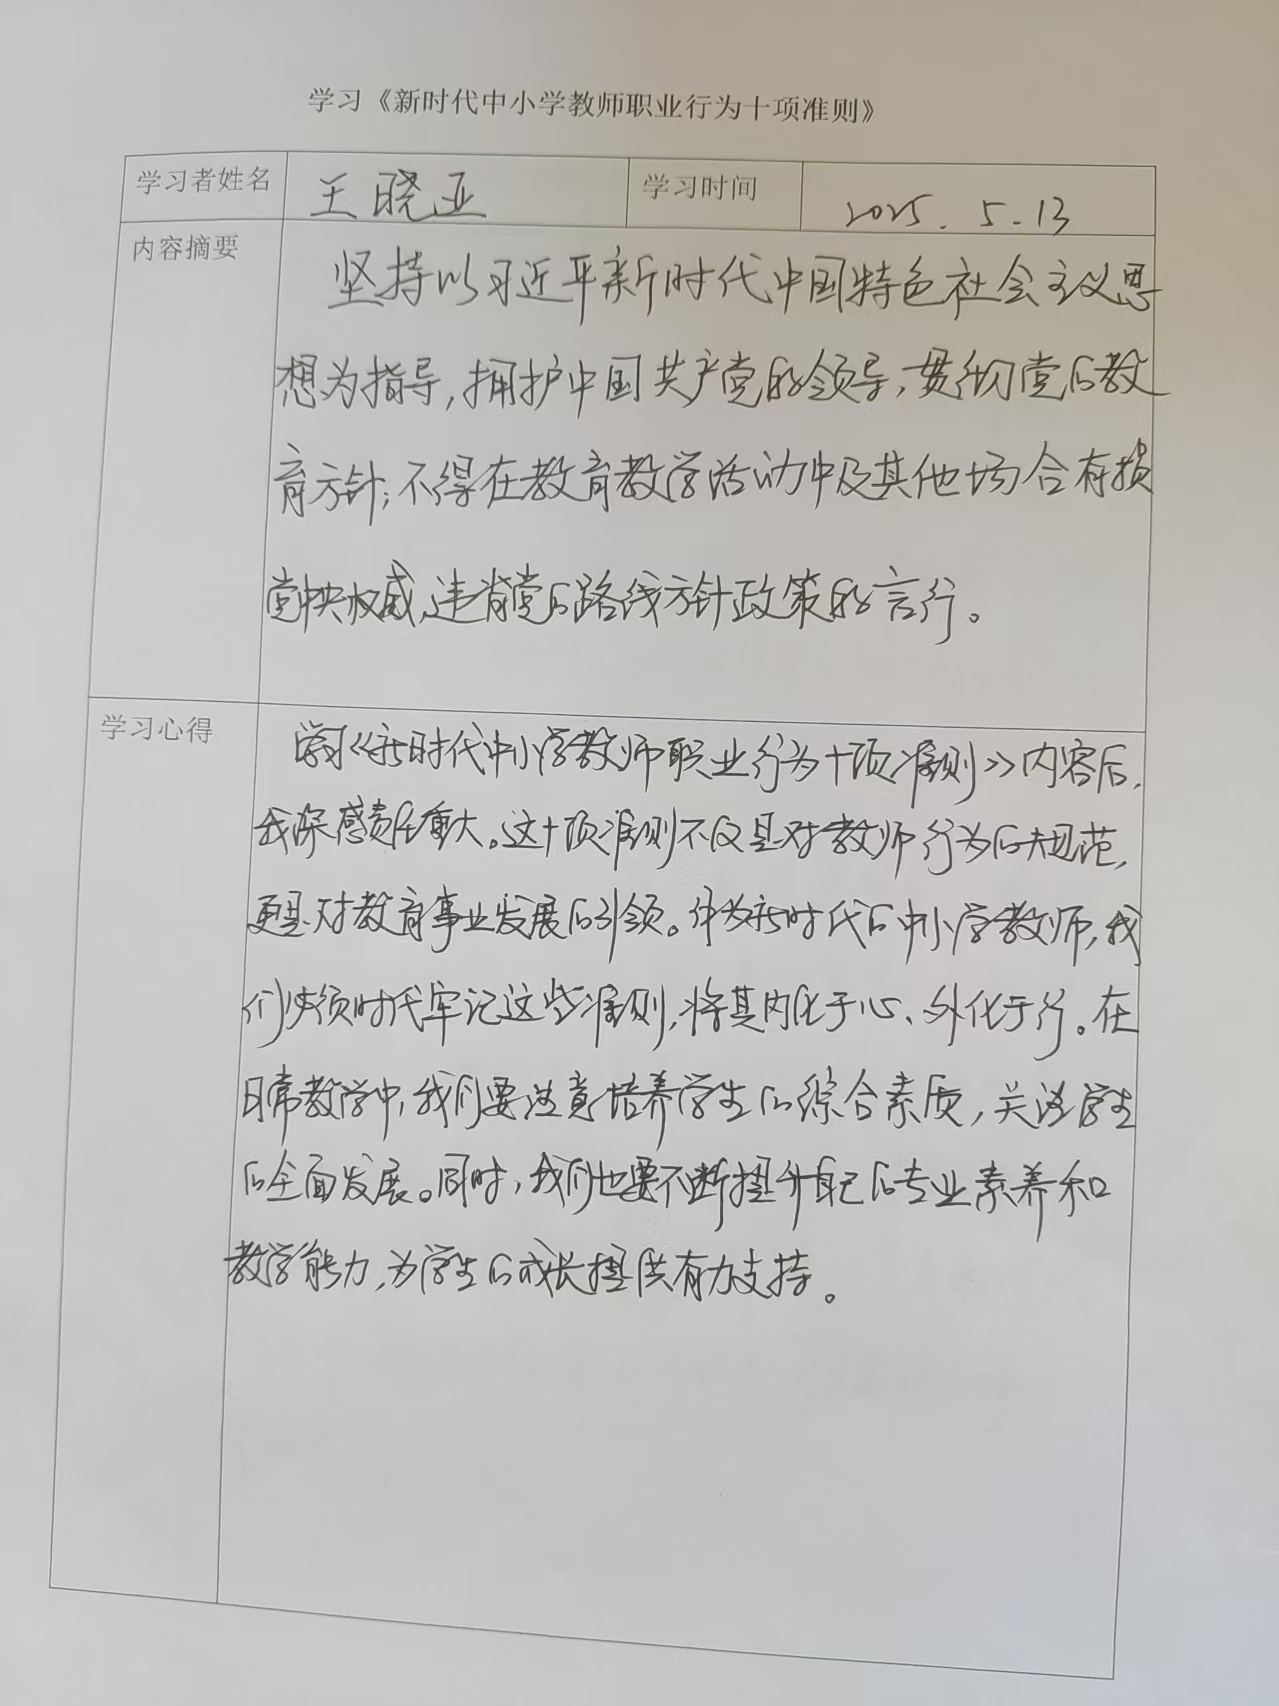 学习《新时代中小学教师职业行为十项准则》
学习者姓名 王晓亚 学习时间 2025.5.13
内容摘要
坚持以习近平新时代中国特色社会主义思
想为指导,拥护中国共产党的领导,贯彻党的教
育方针;不得在教育教学活动中及其他场合有损
党中央权威、违背党的路线方针政策的言行。
学习心得
学习《新时代中小学教师职业行为十项准则》内容后,
我深感责任重大。这十项准则不仅是对教师行为的规范,
更是对教育事业发展的引领。作为新时代的中小学教师,我
们必须时代牢记这些准则,将其内化于心、外化于行。在
日常教学中,我们要注意培养学生的综合素质,关注学生
的全面发展。同时,我们也要不断提升自己的专业素养和
教学能力,为学生的成长提供有力支持。